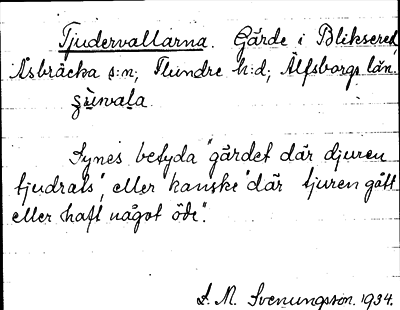 Tjudervallarna. Gärde i Bliksered,
Åsbräcka s:n; Flundre h:d; Älfsborgs län.
Synes betyda "gärdet där djuren
tjudrats", eller kanske "där tjuren gått
eller haft något öde".
S. M. Svenungsson. 1934.